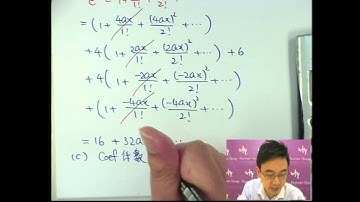 = (1 + 4ax/1! + (4ax)²/2! + ⋯)
+ 4(1 + 2ax/1! + (2ax)²/2! + ⋯) + 6
+ 4(1 + -2ax/1! + (-2ax)²/2! + ⋯)
+ (1 + -4ax/1! + (-4ax)²/2! + ⋯)
= 16 + 32a
(c) Coef 件數